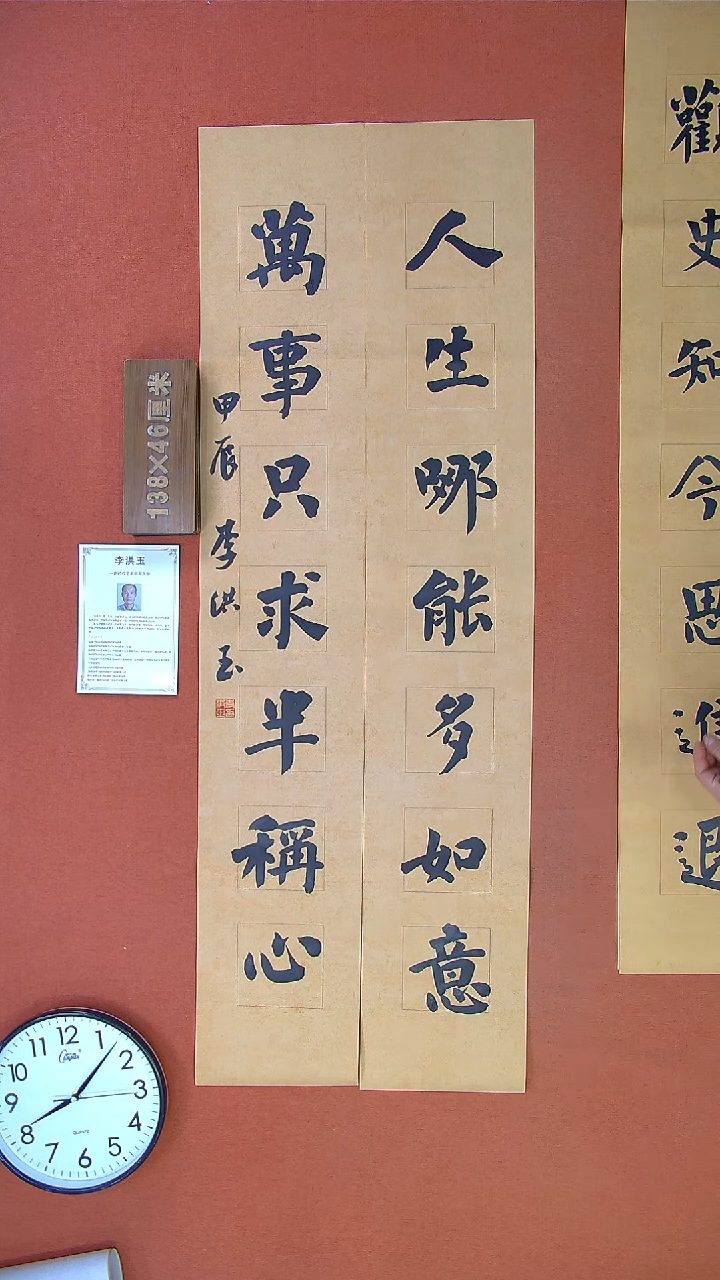 觀史知今思進退
人生哪能多如意
萬事只求半稱心
甲辰 李洪玉
138×46厘米
李洪玉
12
1
2
3
4
5
6
7
8
9
10
11
QUARTZ